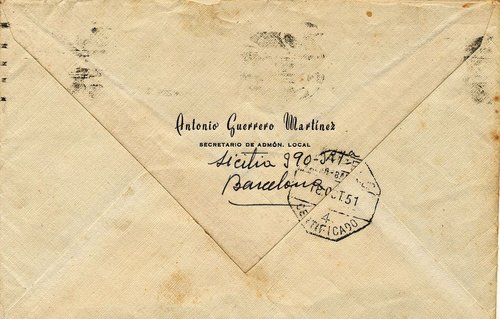 Antonio Guerrero Martínez
SECRETARIO DE ADMÓN. LOCAL
Sicilia 390
Barcelona
OCT.51
4
CERTIFICADO